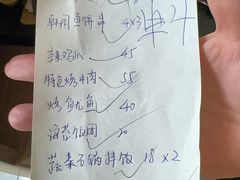 韩国鱼饼串 4×3
辣鸡爪 45
特色烤牛肉 55
烤鱿鱼 40
海苔饭团
蔬菜石锅拌饭 18×2